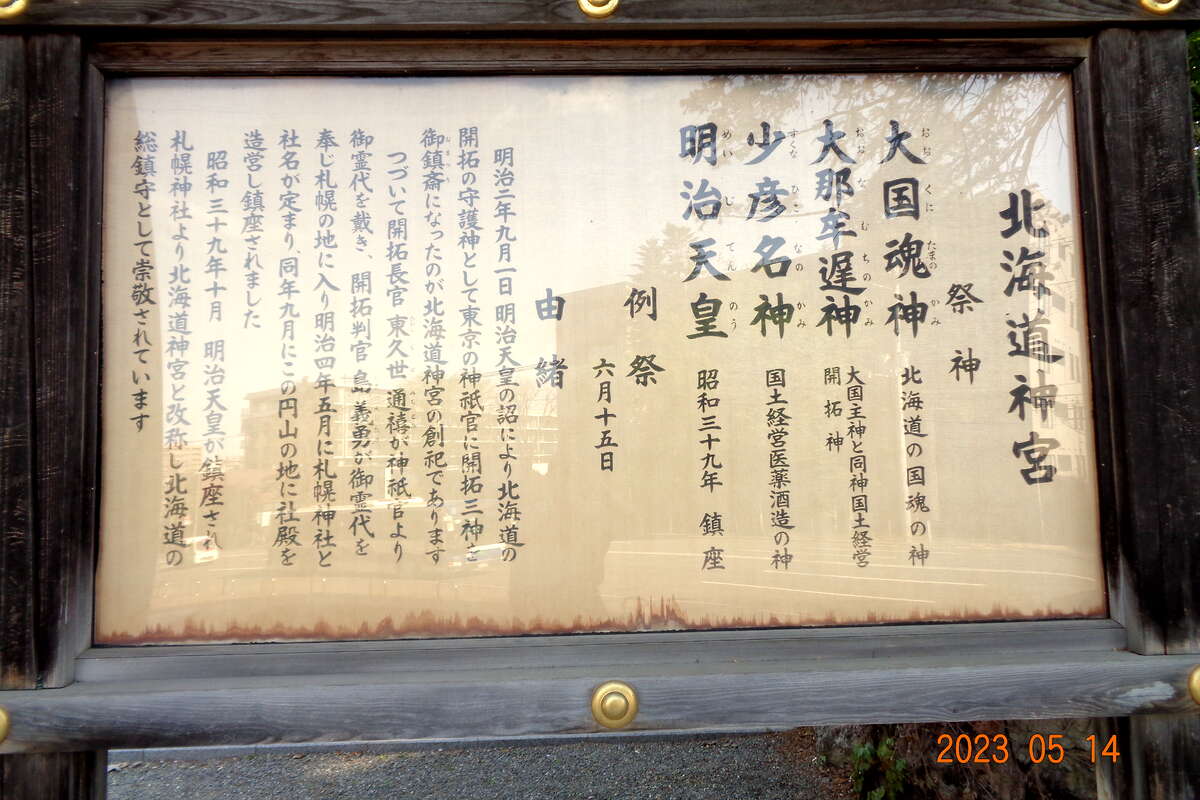 北海道神宮
祭神
大国魂神 北海道の国魂の神
大那牟遅神 大国主神と同神国土経営
開拓神
少彦名神 国土経営医薬酒造の神
明治天皇 昭和三十九年 鎮座
例祭
六月十五日
由緒
明治二年九月一日明治天皇の詔により北海道の
開拓の守護神として東京の神祇官に開拓三神を
御鎮斎になったのが北海道神宮の創祀であります
つづいて開拓長官 東久世 通禧が神祇官より
御霊代を戴き、開拓判官 島 義勇が御霊代を
奉じ札幌の地に入り明治四年五月に札幌神社と
社名が定まり、同年九月にこの円山の地に社殿を
造営し鎮座されました
昭和三十九年十月 明治天皇が鎮座され
札幌神社より北海道神宮と改称し北海道の
総鎮守として崇敬されています
2023 05 14